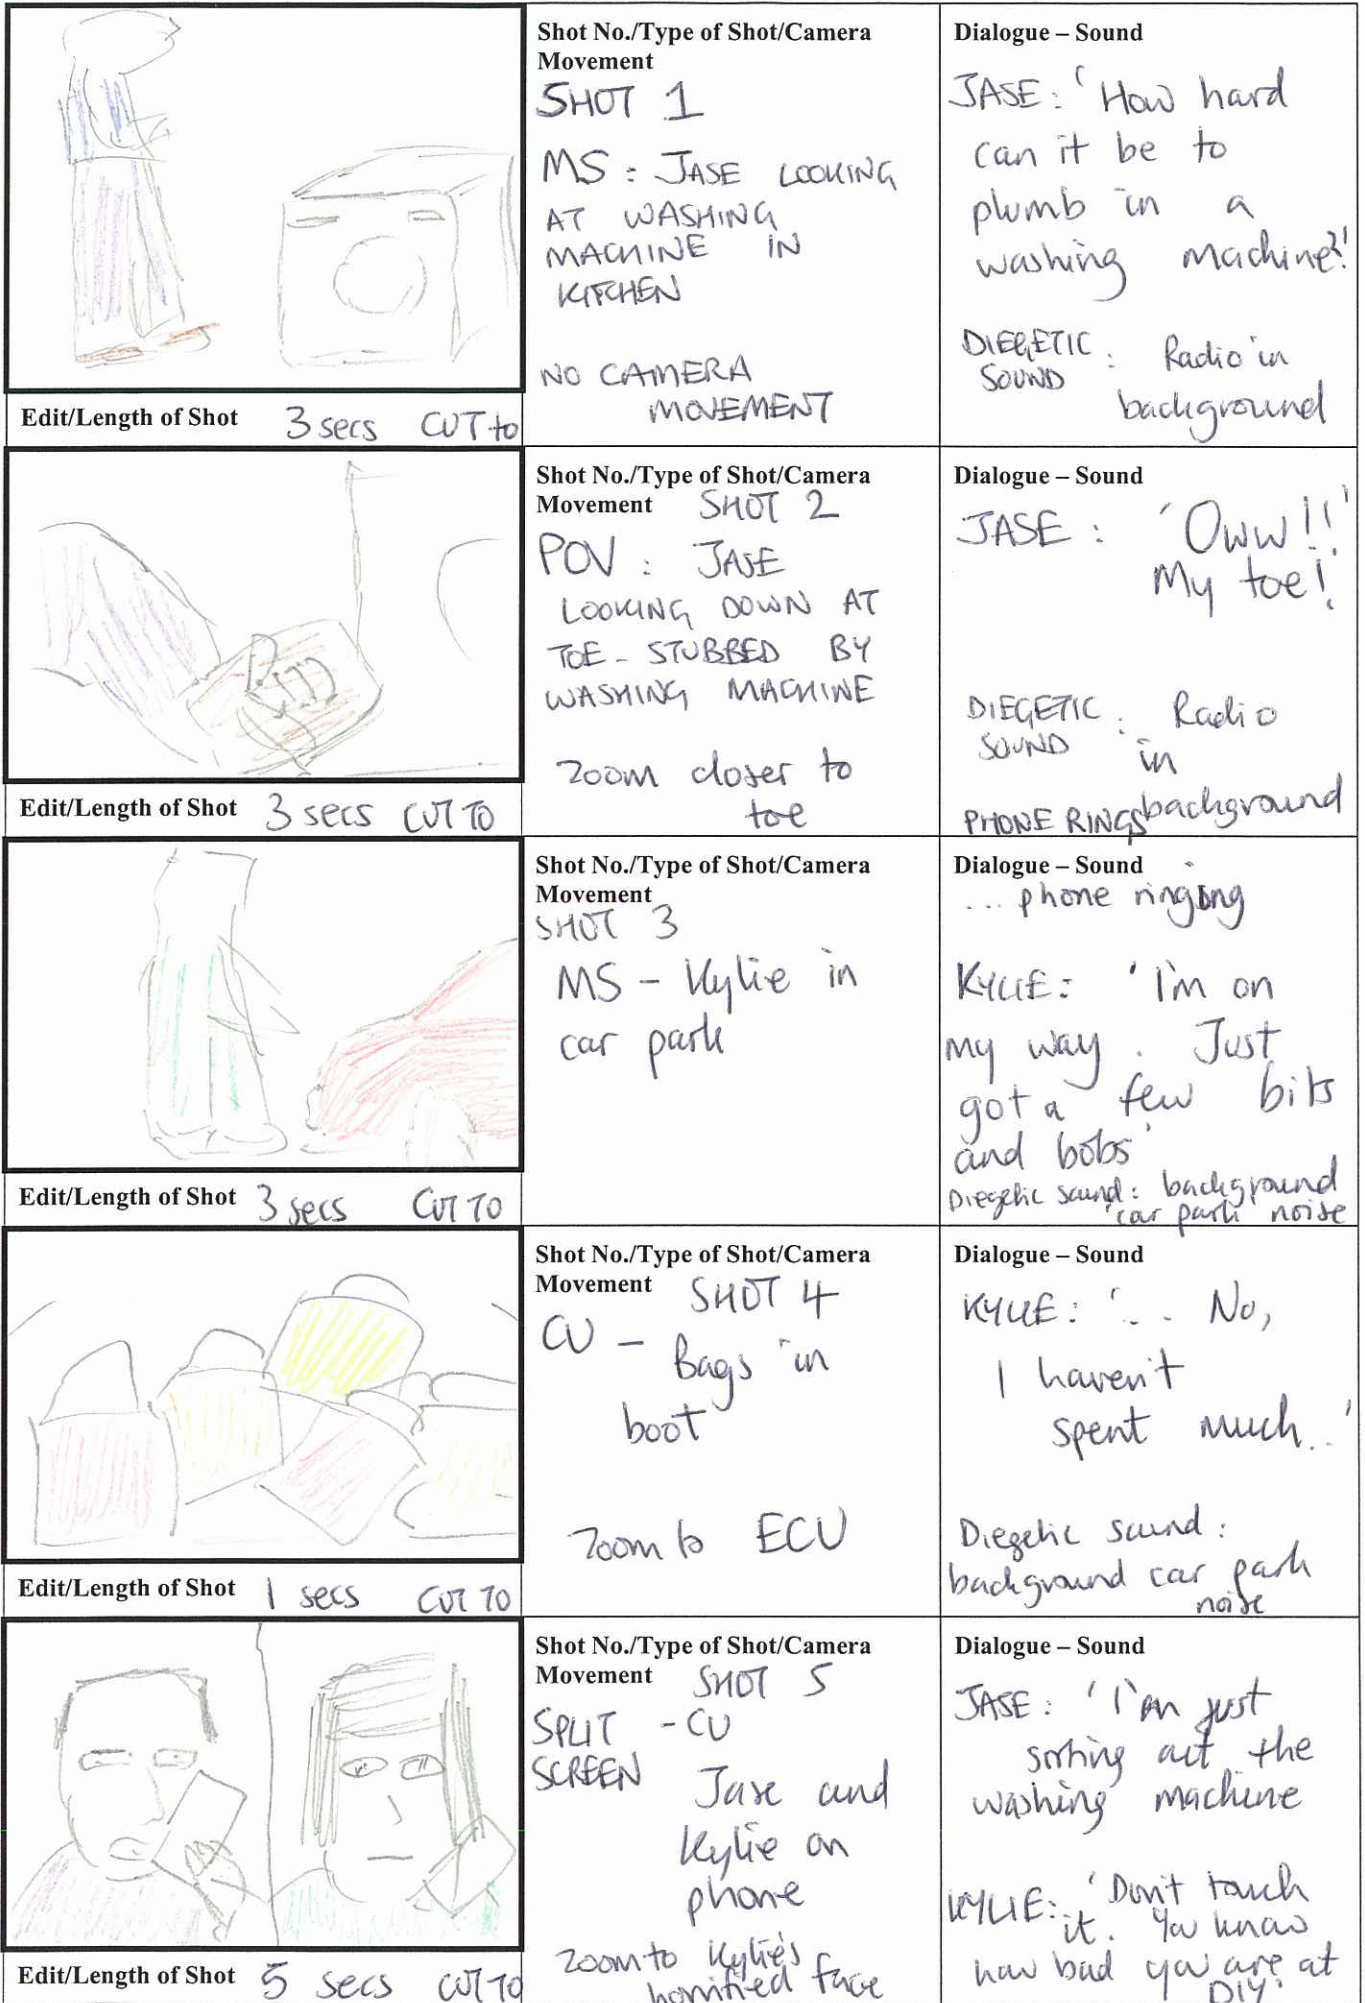 Shot No./Type of Shot/Camera
Movement
SHOT 1
MS : JASE LOOKING
AT WASHING
MACHINE IN
KITCHEN
NO CAMERA
MOVEMENT
Dialogue – Sound
JASE : 'How hard
can it be to
plumb in a
washing machine?!'
DIEGETIC
SOUND : Radio in
background
Edit/Length of Shot 3 secs CUT to
Shot No./Type of Shot/Camera
Movement SHOT 2
POV : JASE
LOOKING DOWN AT
TOE - STUBBED BY
WASHING MACHINE
Zoom closer to
toe
Dialogue – Sound
JASE : 'Oww!!
My toe!'
DIEGETIC
SOUND : Radio
in
background
PHONE RINGS
Edit/Length of Shot 3 secs CUT TO
Shot No./Type of Shot/Camera
Movement
SHOT 3
MS – Kylie in
car park
Dialogue – Sound
... phone ringing
KYLIE : 'I'm on
my way. Just
got a few bits
and bobs'
Diegetic sound : background
'car park' noise
Edit/Length of Shot 3 secs CUT TO
Shot No./Type of Shot/Camera
Movement SHOT 4
CU – Bags in
boot
Zoom to ECU
Dialogue – Sound
KYLIE : '... No,
I haven't
spent much..'
Diegetic sound :
background car park
noise
Edit/Length of Shot 1 secs CUT TO
Shot No./Type of Shot/Camera
Movement SHOT 5
SPLIT - CU
SCREEN
Jase and
Kylie on
phone
Zoom to Kylie's
horrified face
Dialogue – Sound
JASE : 'I'm just
sorting out the
washing machine
KYLIE : 'Don't touch
it. You know
how bad you are at
DIY.'
Edit/Length of Shot 5 secs CUT TO